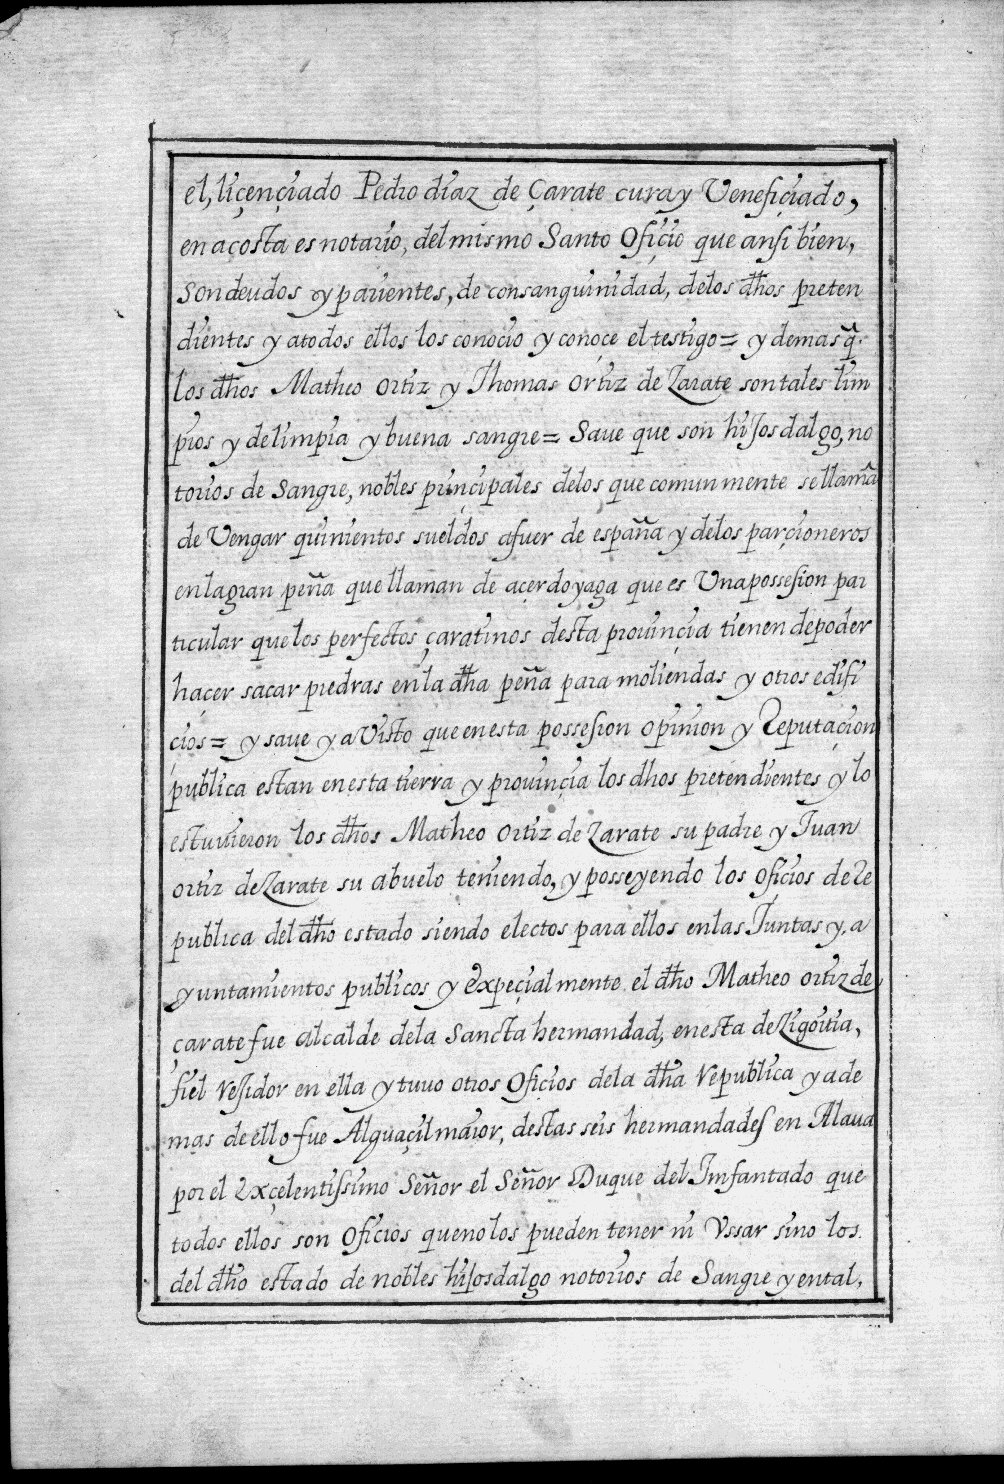 el, liçençiado Pedro diaz de Çarate cura y Veneficiado,
en acosta es notario, del mismo Santo Oficio que ansi bien,
son deudos y parientes, de consanguinidad, delos dhos preten
dientes y atodos ellos los conocio y conoçe el testigo= y demas q̃.
los dhos Matheo ortiz y Thomas ortiz de Zarate son tales lim
pios y de limpia y buena sangre= Saue que son hiJos dalgo, no
torios de Sangre, nobles principales delos que comun mente se llamã
de Vengar quinientos sueldos afuer de españa y delos parçioneros
en la gran peña que llaman de açerdoyaga que es Una possesion par
ticular que los perfectos çaratinos desta prouinçia tienen de poder
hacer sacar piedras en la dha peña para moliendas y otros edifi
cios= y saue y a Visto que en esta possesion opinion y Reputaçion
publica estan en esta tierra y prouinçia los dhos pretendientes y lo
estuuieron los dhos Matheo ortiz de Zarate su padre y Juan
ortiz de Zarate su abuelo teniendo, y posseyendo los oficios de Re
publica del dho estado siendo electos para ellos en las Juntas y, a
yuntamientos publicos y expeçial mente el dho Matheo ortiz de
çarate fue alcalde dela Sancta hermandad, en esta de Zigoitia,
fiel Residor en ella y tuuo otros Oficios dela dha Republica y ade
mas de ello fue Alguaçil maior, destas seis hermandades en Alaua
por el exçelentissimo Señor el Señor Duque del Imfantado que
todos ellos son Oficios que no los pueden tener ni Vssar sino los
del dho estado de nobles hiJosdalgo notorios de Sangre y en tal,